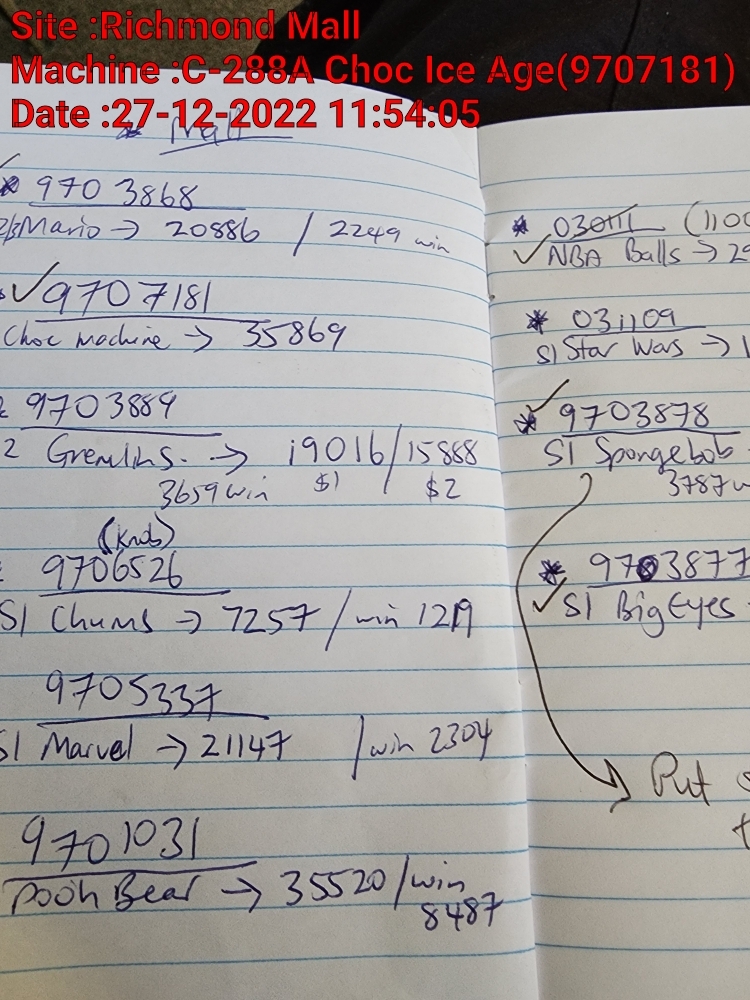 Site :Richmond Mall
Machine :C-288A Choc Ice Age(9707181)
Date :27-12-2022 11:54:05
* Mall
* 9703868
Mario → 20886 / 2249 win
✓ 9707181
Choc machine → 35869
9703889
2 Gremlins. → 19016/15888
3659 win $1 $2
(Knob)
9706526
S1 Chums → 7257 / win 1219
9705337
S1 Marvel → 21147 / win 2304
9701031
Pooh Bear → 35520 / win
8487
* 030111 (110
✓ NBA Balls → 29
* 031109
S1 Star Wars → 1
* ✓ 9703878
S1 Spongebob
3787 w
* 9703877
✓ S1 Big Eyes
Put